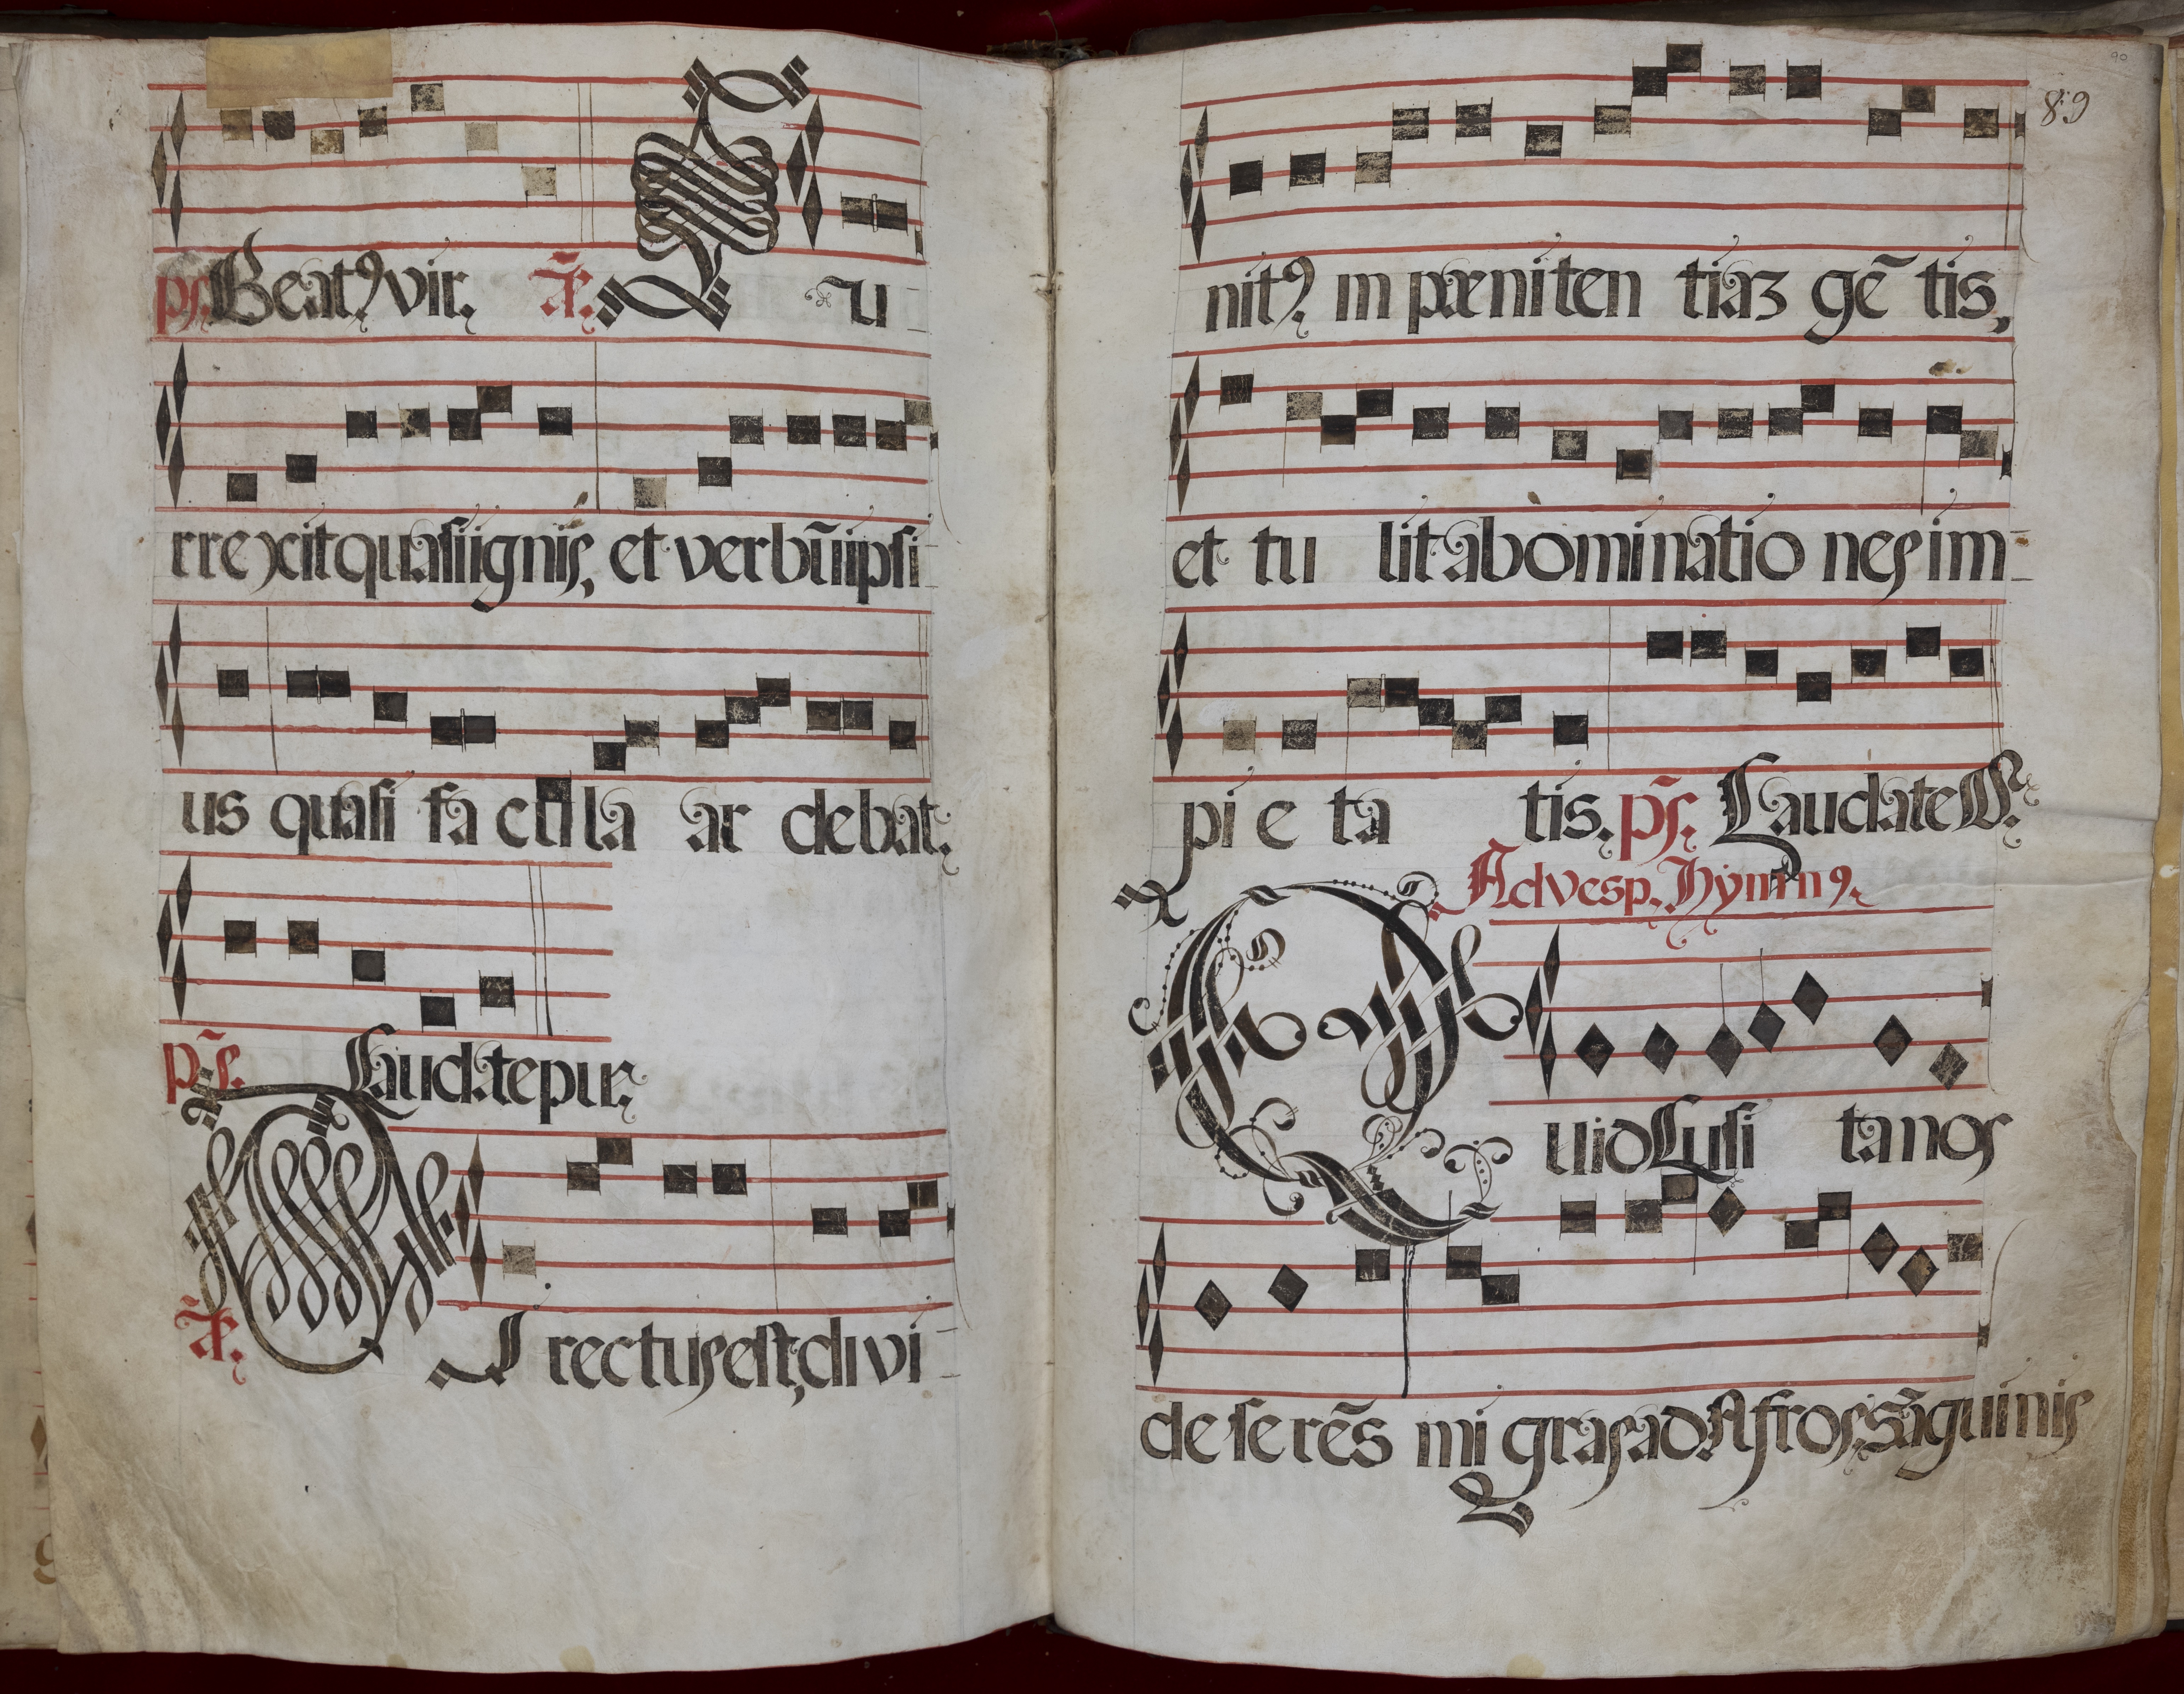 ps. Beatꝰ vir. Ãñ. Su-
rrexit quasi ignis, et verbũ ipsi-
us quasi facula ardebat.
ps. Laudate pue.
Ãñ. Directus est, divi-
89
90
nitꝰ in pœnitentiaz gẽtis,
et tulit abominationes im-
pietatis. ps. Laudate D.
Ad vesp. Hymnꝰ.
Quid Lusitanos
deserẽs migras ad Afros, Sãguinis